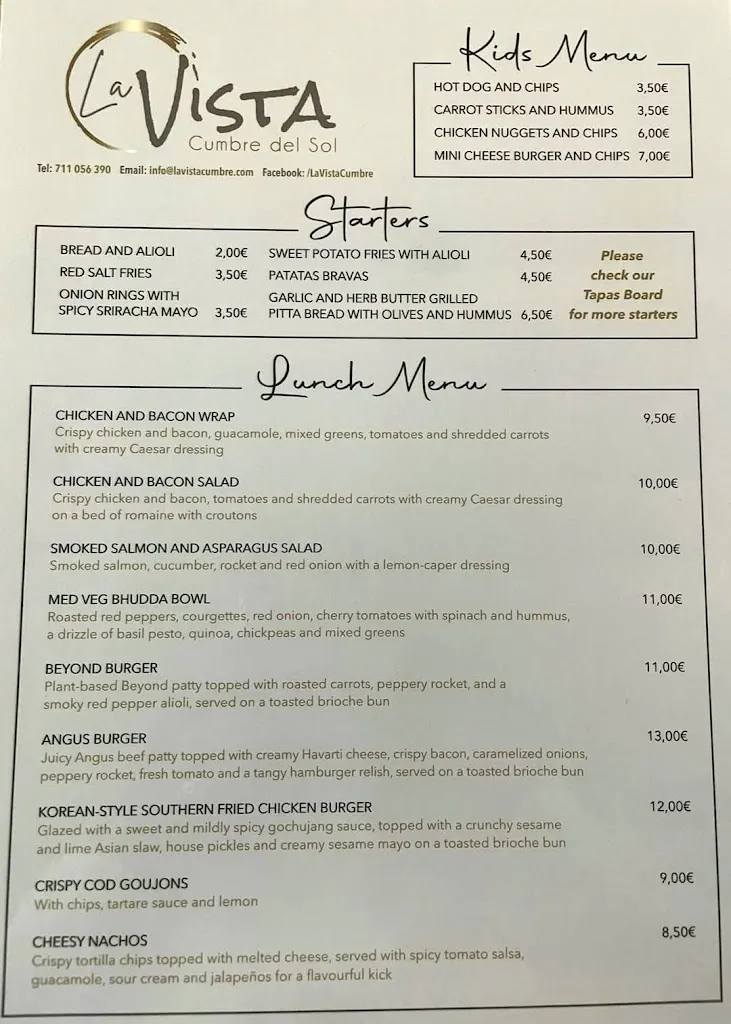 La Vista
Cumbre del Sol
Tel: 711 056 390 Email: info@lavistacumbre.com Facebook: /LaVistaCumbre
Kids Menu
HOT DOG AND CHIPS 3,50€
CARROT STICKS AND HUMMUS 3,50€
CHICKEN NUGGETS AND CHIPS 6,00€
MINI CHEESE BURGER AND CHIPS 7,00€
Starters
BREAD AND ALIOLI 2,00€
RED SALT FRIES 3,50€
ONION RINGS WITH
SPICY SRIRACHA MAYO 3,50€
SWEET POTATO FRIES WITH ALIOLI 4,50€
PATATAS BRAVAS 4,50€
GARLIC AND HERB BUTTER GRILLED
PITTA BREAD WITH OLIVES AND HUMMUS 6,50€
Please
check our
Tapas Board
for more starters
Lunch Menu
CHICKEN AND BACON WRAP 9,50€
Crispy chicken and bacon, guacamole, mixed greens, tomatoes and shredded carrots
with creamy Caesar dressing
CHICKEN AND BACON SALAD 10,00€
Crispy chicken and bacon, tomatoes and shredded carrots with creamy Caesar dressing
on a bed of romaine with croutons
SMOKED SALMON AND ASPARAGUS SALAD 10,00€
Smoked salmon, cucumber, rocket and red onion with a lemon-caper dressing
MED VEG BHUDDA BOWL 11,00€
Roasted red peppers, courgettes, red onion, cherry tomatoes with spinach and hummus,
a drizzle of basil pesto, quinoa, chickpeas and mixed greens
BEYOND BURGER 11,00€
Plant-based Beyond patty topped with roasted carrots, peppery rocket, and a
smoky red pepper alioli, served on a toasted brioche bun
ANGUS BURGER 13,00€
Juicy Angus beef patty topped with creamy Havarti cheese, crispy bacon, caramelized onions,
peppery rocket, fresh tomato and a tangy hamburger relish, served on a toasted brioche bun
KOREAN-STYLE SOUTHERN FRIED CHICKEN BURGER 12,00€
Glazed with a sweet and mildly spicy gochujang sauce, topped with a crunchy sesame
and lime Asian slaw, house pickles and creamy sesame mayo on a toasted brioche bun
CRISPY COD GOUJONS 9,00€
With chips, tartare sauce and lemon
CHEESY NACHOS 8,50€
Crispy tortilla chips topped with melted cheese, served with spicy tomato salsa,
guacamole, sour cream and jalapeños for a flavourful kick